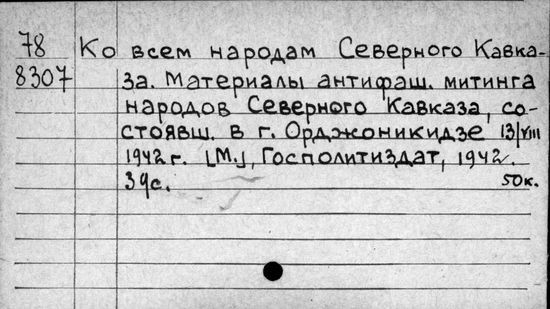 78 Ко всем народам Северного Кавка-
8307 за. Материалы антифаш. митинга
народов Северного Кавказа, со-
стоявш. в г. Орджоникидзе 13/VIII
1942 г. [М.], Госполитиздат, 1942.
39с. 50к.